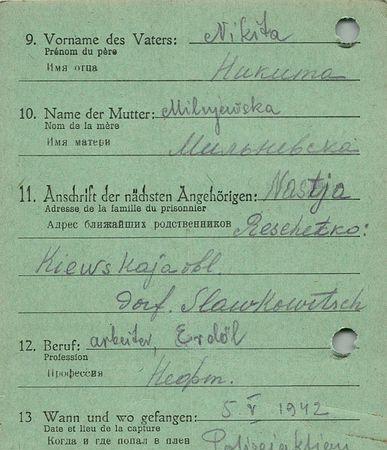 9. Vorname des Vaters: Nikita
Prénom du père
Имя отца Никита
10. Name der Mutter: Milnjewska
Nom de la mère
Имя матери Мильневска
11. Anschrift der nächsten Angehörigen: Nastja
Adresse de la famille du prisonnier
Адрес ближайших родственников Reschetko:
Kiewskaja obl.
Dorf. Slawkowitsch
12. Beruf: arbeiter, Erdöl
Profession
Профессия Нефт.
13 Wann und wo gefangen: 5 V 1942
Date et lieu de la capture
Когда и где попал в плен